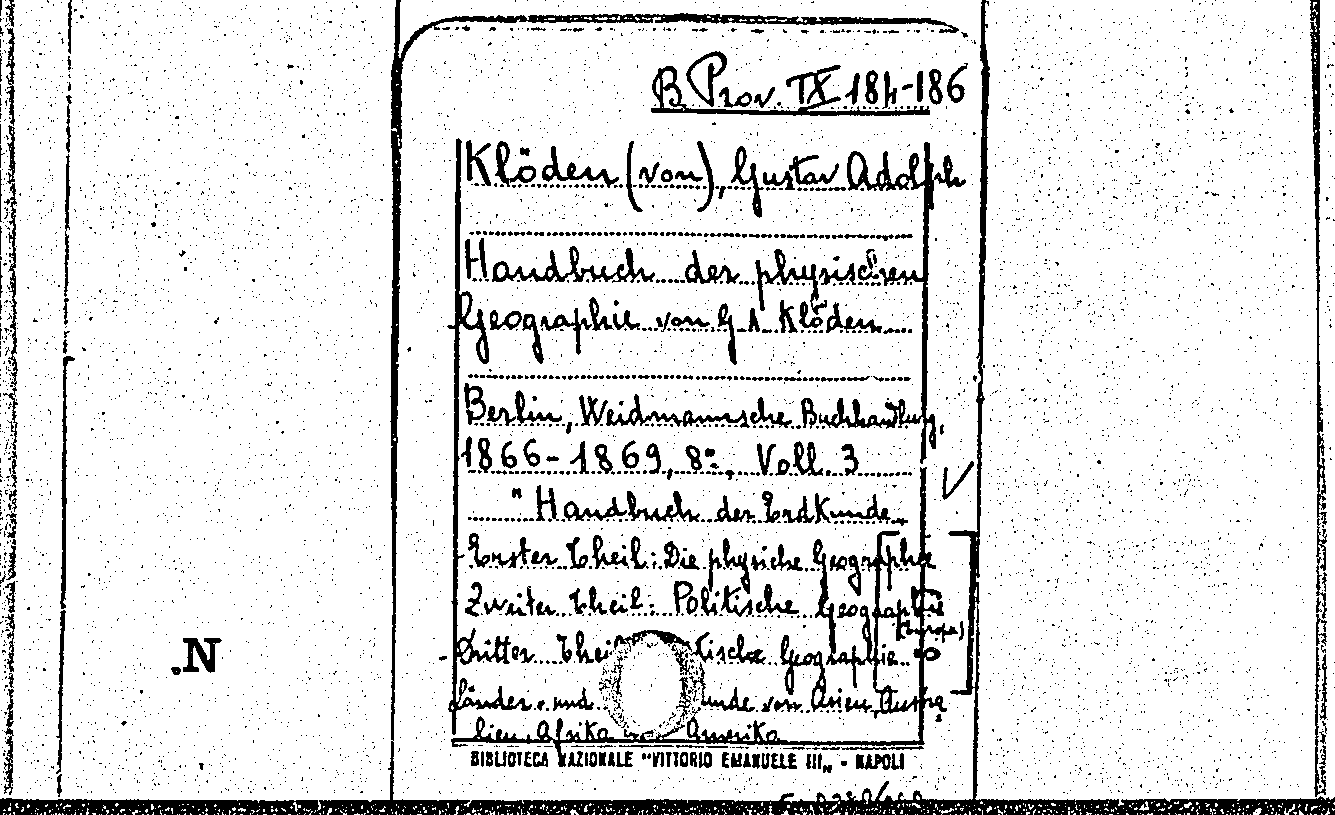 B Prov. IX 184-186
Klöden (von), Gustav Adolph
Handbuch der physischen
Geographie von G. A. Klöden
Berlin, Weidmannsche Buchhandlung,
1866-1869, 8º, Voll. 3
" Handbuch der Erdkunde.
- Erster Theil: Die physiche Geographie
- Zweiter Theil: Politische Geographie
(Europa)
- Dritter Geographie
Länder- und von Asien, Austra
lien, Afrika Amerika
BIBLIOTECA NAZIONALE "VITTORIO EMANUELE III„ - NAPOLI
N.